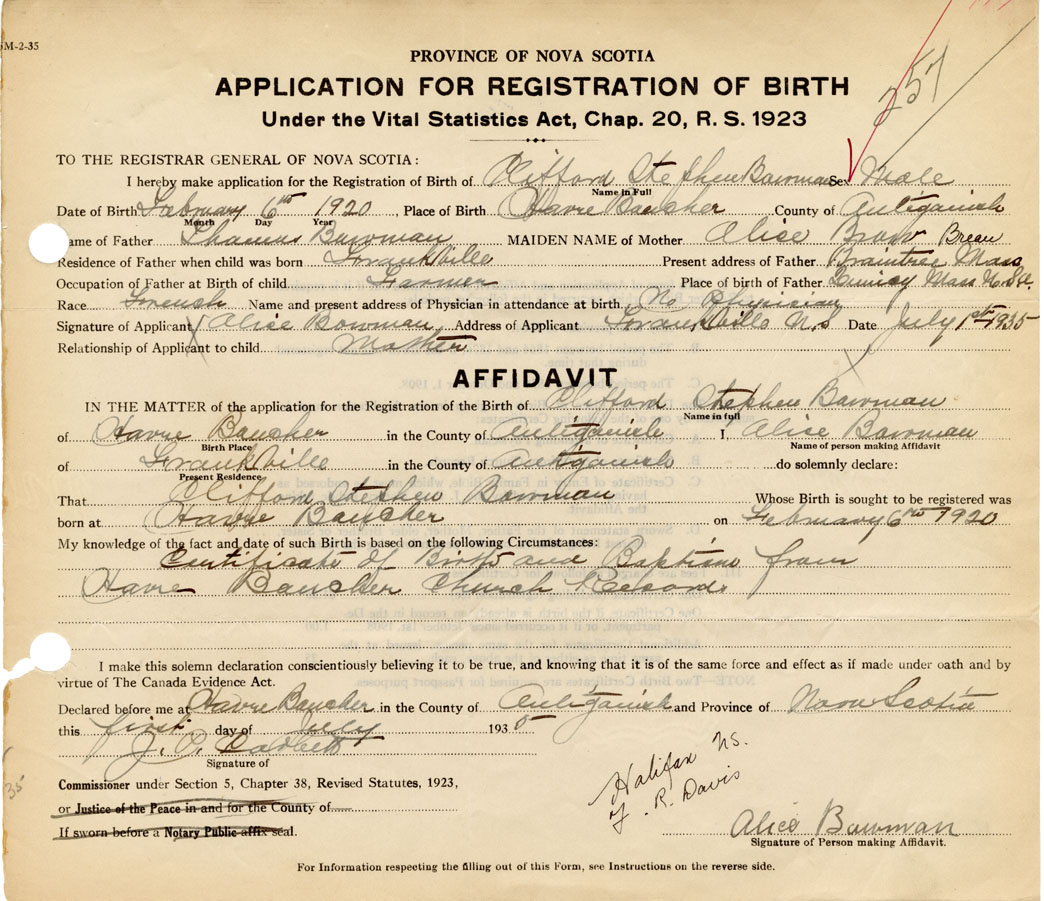 5M-2-35
PROVINCE OF NOVA SCOTIA
APPLICATION FOR REGISTRATION OF BIRTH
257
Under the Vital Statistics Act, Chap. 20, R. S. 1923
TO THE REGISTRAR GENERAL OF NOVA SCOTIA:
I hereby make application for the Registration of Birth of Clifford Stephen Bowman Sex Male
Name in Full
Date of Birth February 6th 1920, Place of Birth Havre Baucher County of Antigonish
Month Day Year
Name of Father Thomas Bowman MAIDEN NAME of Mother Alice Breau
Residence of Father when child was born Frankville Present address of Father Braintree Mass
Occupation of Father at Birth of child Farmer Place of birth of Father Quincy Mass
Race French Name and present address of Physician in attendance at birth No Physician
Signature of Applicant Alice Bowman Address of Applicant Frankville N.S Date July 1st 1935
Relationship of Applicant to child Mother
AFFIDAVIT
IN THE MATTER of the application for the Registration of the Birth of Clifford Stephen Bowman
Name in full
of Havre Baucher in the County of Antigonish I, Alice Bowman
Birth Place Name of person making Affidavit
of Frankville in the County of Antigonish do solemnly declare:
Present Residence
That Clifford Stephen Bowman Whose Birth is sought to be registered was
born at Havre Baucher on February 6 1920
My knowledge of the fact and date of such Birth is based on the following Circumstances:
Certificate of Birth and Baptism from
Havre Baucher Church Record.
I make this solemn declaration conscientiously believing it to be true, and knowing that it is of the same force and effect as if made under oath and by
virtue of The Canada Evidence Act.
Declared before me at Havre Baucher in the County of Antigonish and Province of Nova Scotia
this first day of July 1935
J. C. Corbett
Signature of
Commissioner under Section 5, Chapter 38, Revised Statutes, 1923,
or Justice of the Peace in and for the County of
If sworn before a Notary Public affix seal.
35
Halifax NS.
F. R. Davis
Alice Bowman
Signature of Person making Affidavit.
For Information respecting the filling out of this Form, see Instructions on the reverse side.